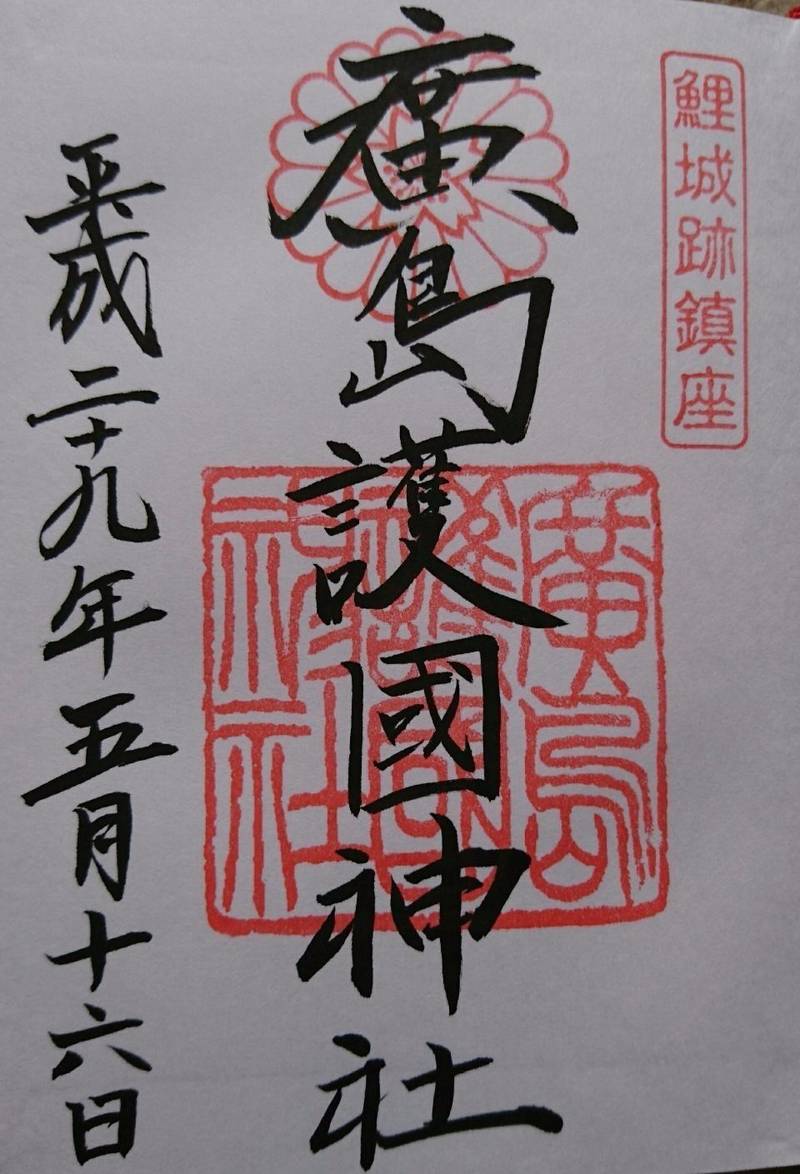 鯉城跡鎮座
廣島護國神社
廣島
護國
神社
平成二十九年五月十六日